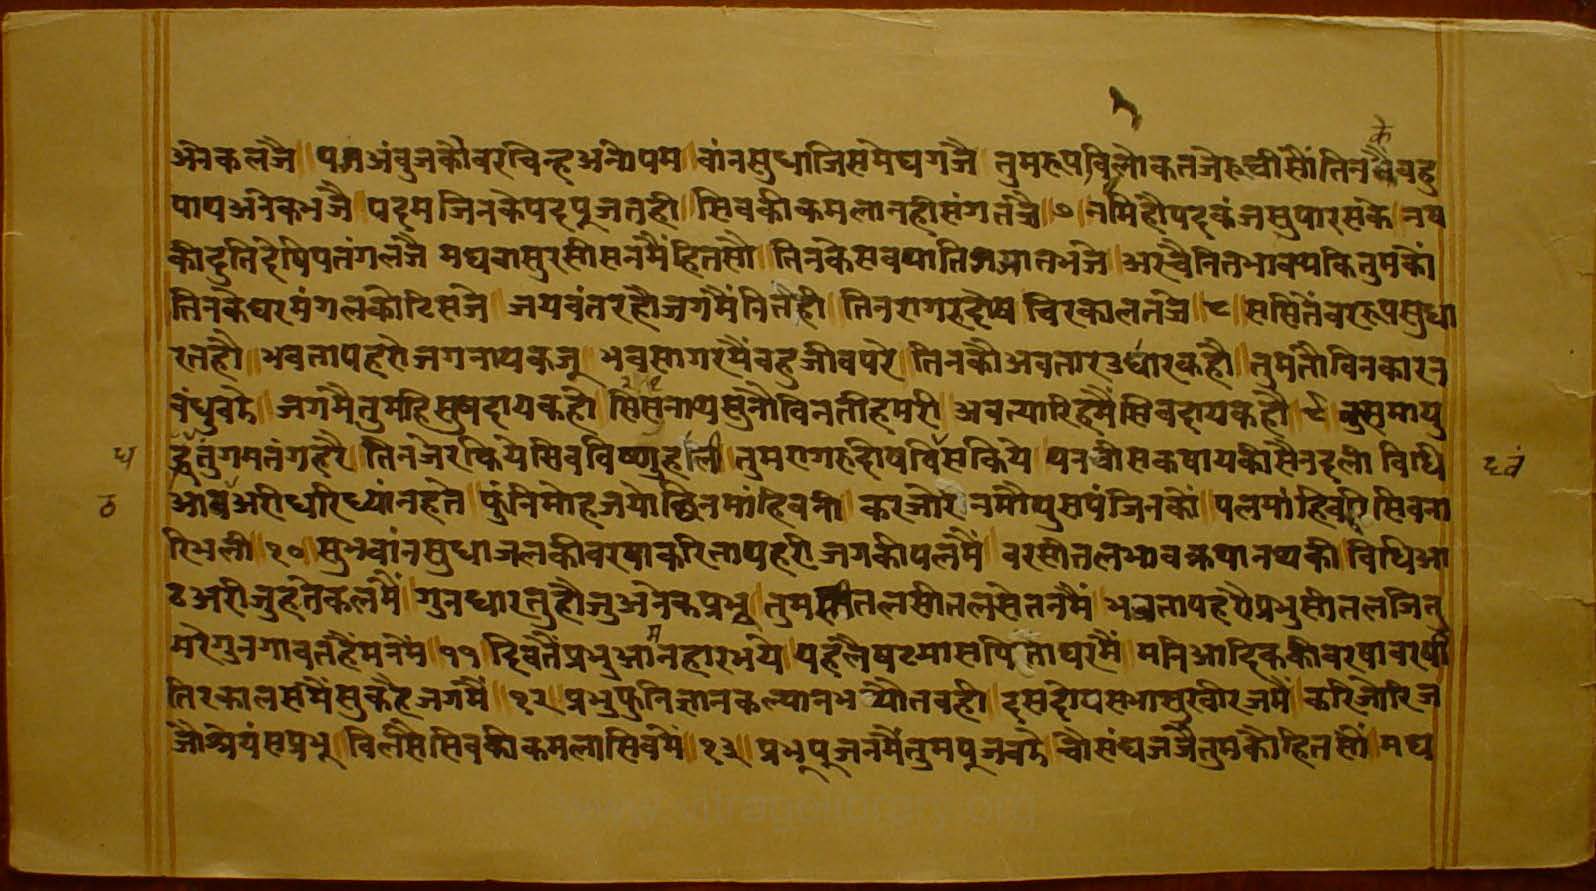 अनेकलजै ॥ पग अंबुजकौ वर चिन्ह अनोपम ॥ वांन सुधा जिसमे घगजै ॥ तुम रूप विलोकत जे रूची सौं तिनके बहु
पाप अनेक भजै ॥ पदम जिनके पद पूजत ही ॥ सिवकी कमला नही संग तजै ॥ ७ ॥ नमिहौ पद कंज सुपारसके ॥ नष
की दुति देषि पतंग लजै ॥ मघवा सुर सीस नमैं हित सौ ॥ तिनके सब भजे
तिनके घर मंगल कोटि सजे ॥ जयवंत रहौ जगमैं नितही ॥ तिन राग रु दोष चिरकाल तजे ॥ ८ ॥ ससि तें वर रूप सुधा
रत हौ ॥ भवताप हरो जगनायक जू ॥ भवसागरमैं बहु जीव परे ॥ तिनकौ अवतार उधारक हौ ॥ तुम तौ विन कारन
बंधु बडे ॥ जगमै तुमहि सुषदायक हौ ॥ ससिनाथ सुनौ विनती हमरी ॥ अब त्यारि हमैं सिवदायक हौ ॥ ९ ॥ कुसमायु
द्ध तुंग मतंग हरे ॥ तिन जेर किये सिव विष्णु हली ॥ तुम राग रु दोष विसकिये ॥ पनवीस कषाय की सैन दली ॥ विधि
आठ अरी धरि ध्यांन हते ॥ पुंनि मोह जयो छिन मांहि वली ॥ कर जोरि नमौ पुसपं जिनकौं ॥ पल मांहि वरि सिवना
रि भली ॥ १० ॥ सुभ वांन सुधाजलकी वरषा करि ताप हरी जगकी पलमैं ॥ वर सीतल भव्य कीविधि आ
ठ अरी जु हते कलमैं ॥ गुन धारतु हौ जु अनेक प्रभू ॥ तुम सीतल सीतलसे तनमैं ॥ भवताप हरौ प्रभु सीतल जिन तु
मरे गुन गावत हैं मनमैं ॥ ११ ॥ दिवतैं प्रभु आनमहार भये ॥ पहलै षटमास पिता घरमैं ॥ मनि आदिककी वरषा वरषी
तिर काल समैं सुकहै जगमैं ॥ १२ ॥ प्रभु फुनि ज्ञान कल्यान भ यौ तबही ॥ दस दोय सभा सु रची रजमैं ॥ करि जोरि ज
जौ श्रेयंस प्रभू ॥ विलसै सिवकी कमला सिवमैं ॥ १३ ॥ प्रभु पूजनमैं तुम पूज बडे ॥ चौ संघ जजै तुमकौ हित सौं ॥ मघ
५
८
६वं
www.vitraglibrary.org